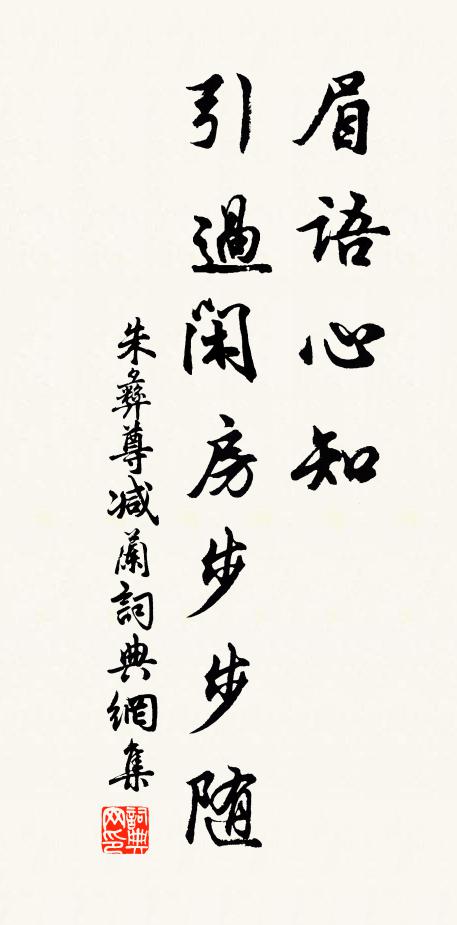 眉語心知
引過閑房步步随
朱彝尊減蘭詞典網集
詞典網印